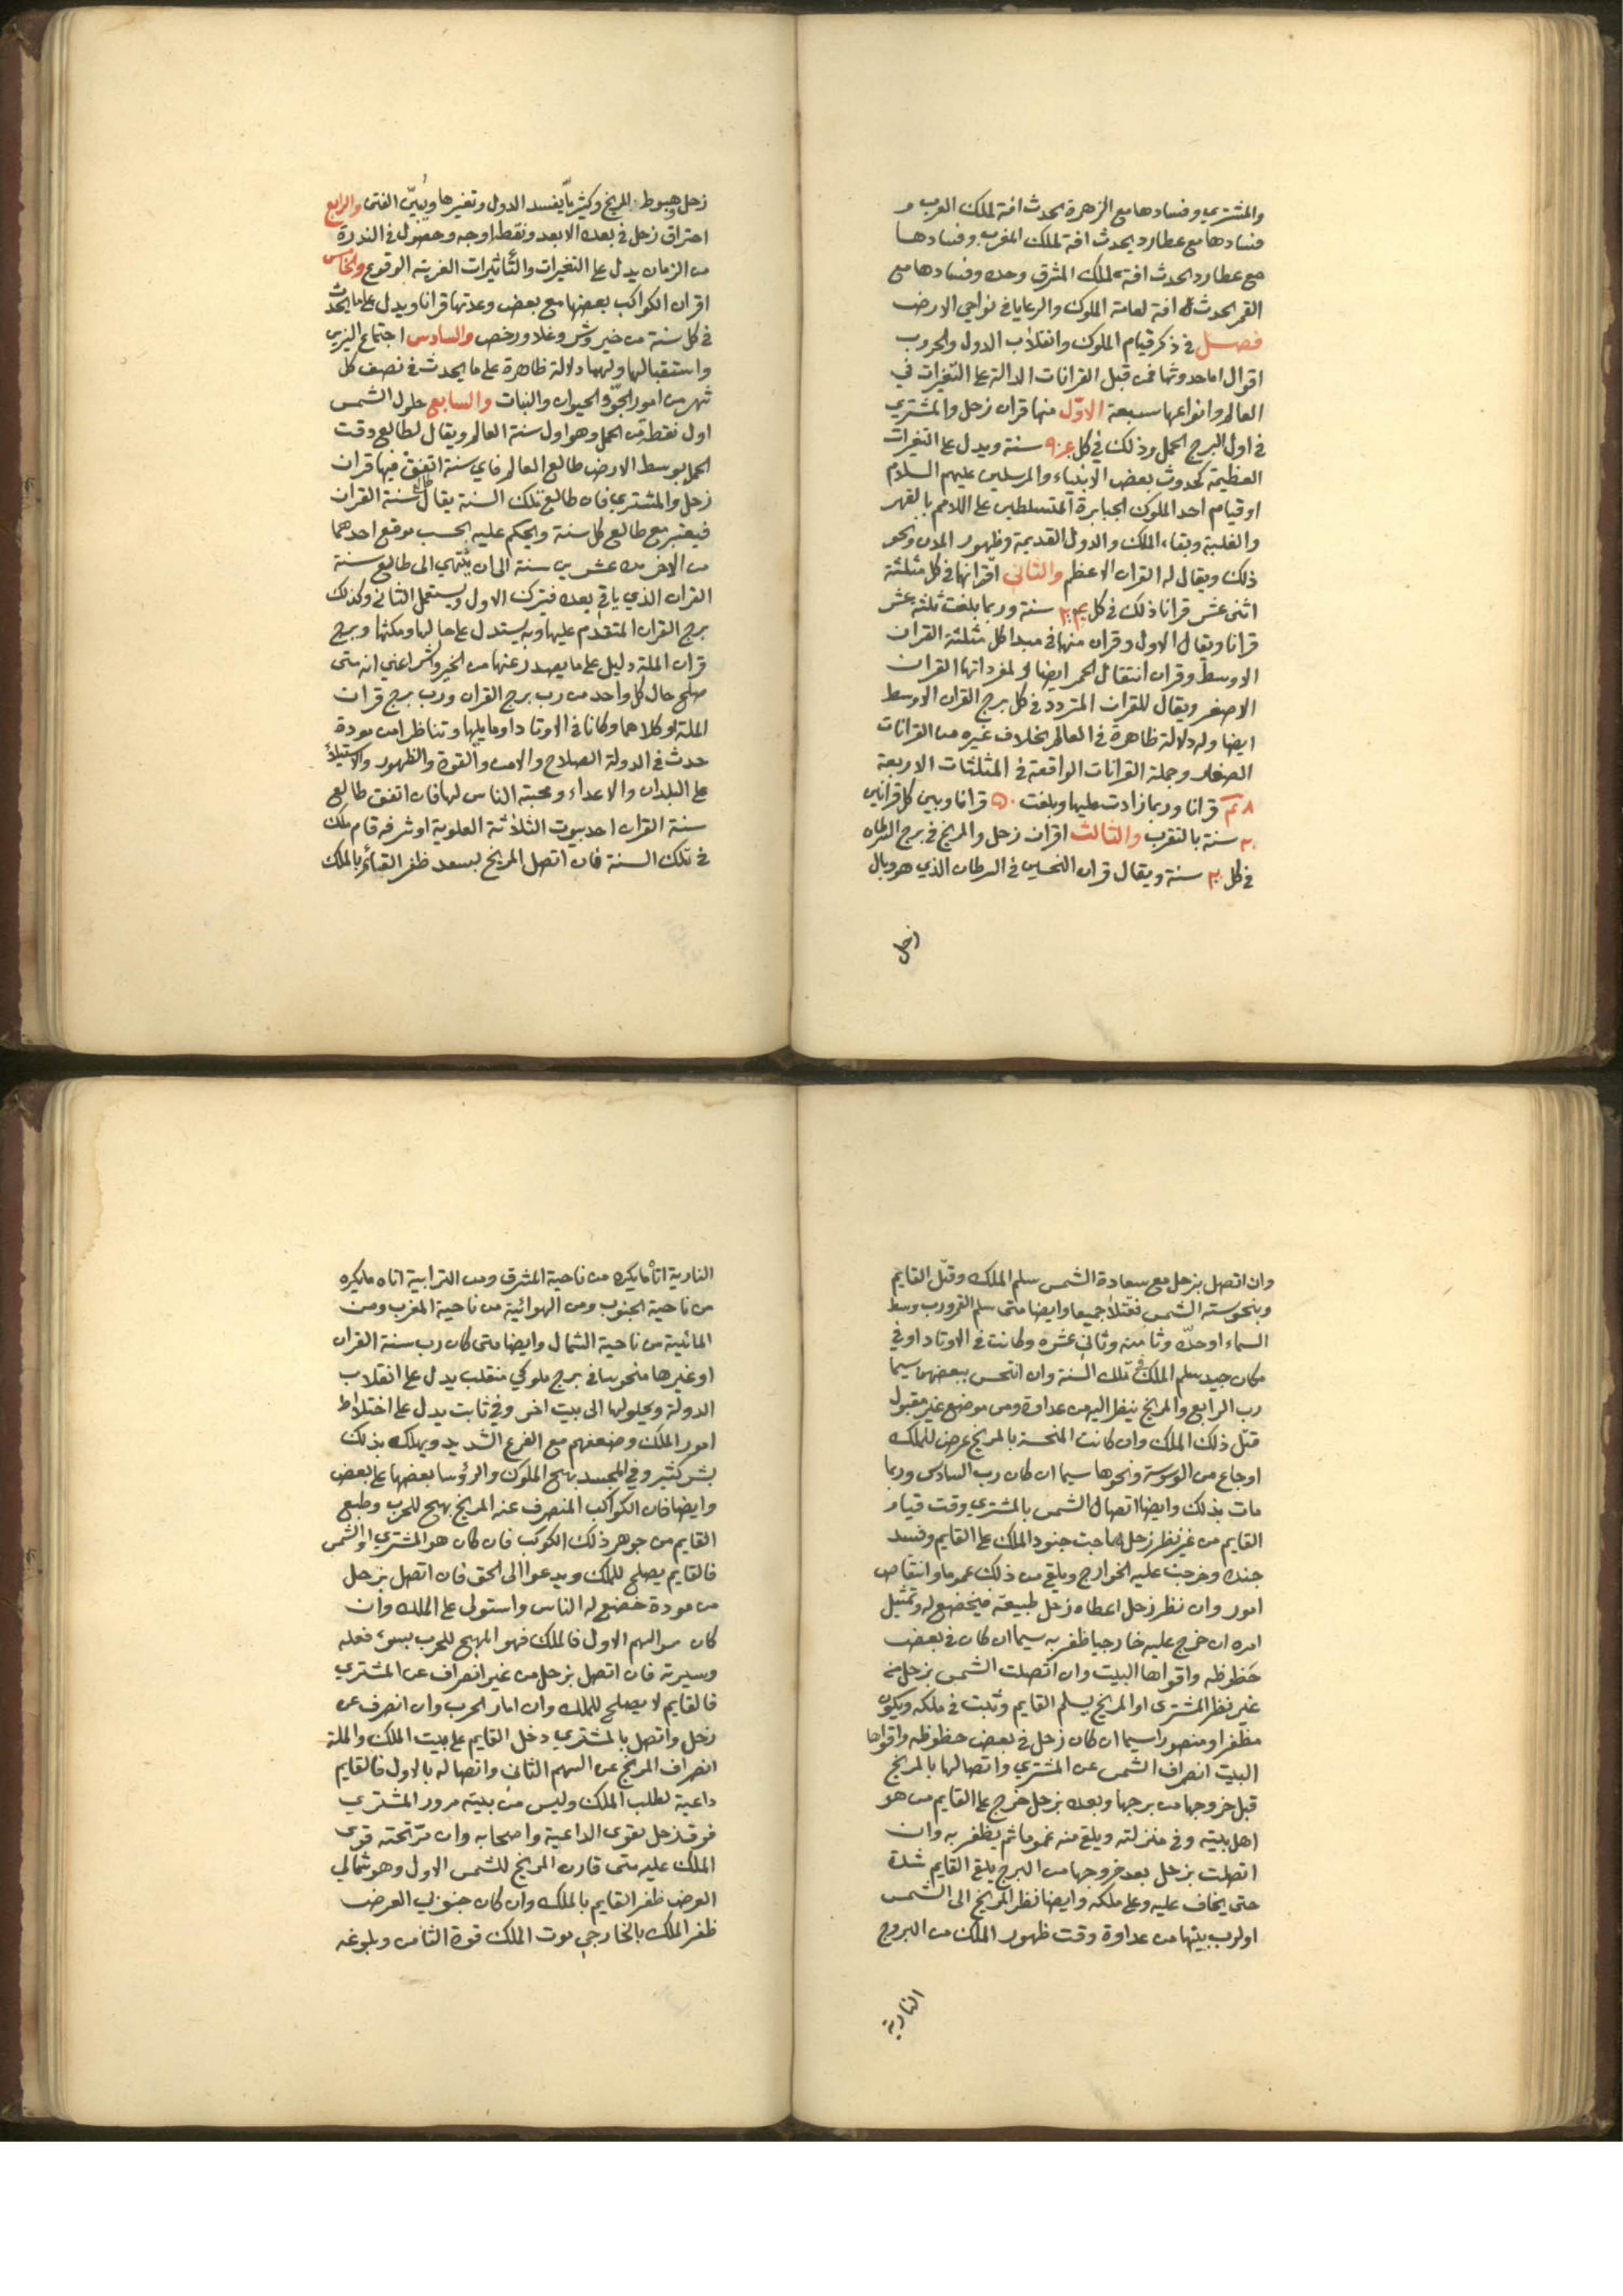 والمشتري وفسادها مع الزهرة يحدث افة لملك العرب و
فسادها مع عطارد يحدث افة لملك المغرب وفسادها
مع عطارد يحدث افة لملك المشرق وحده وفسادها مع
القمر يحدث افة لعامة الملوك والرعايا في نواحي الارض
فصل في ذكر قيام الملوك وانقلاب الدول والحروب
اقول اما حدوثها فمن قبل القرانات الدالة على التغيرات في
العالم وانواعها سبعة الاول منها قران زحل والمشتري
في اول البرج الحمل وذلك في كل سنة ويدل على التغيرات
العظيمة كحدوث بعض الانبياء والمرسلين عليهم السلام
او قيام احد الملوك الجبابرة المتسلطين على الامم بالقهر
والغلبة وبقاء الملك والدول القديمة وظهور المدن ونحو
ذلك ويقال له القران الاعظم والثاني اقترانها في كل مثلثة
اثنى عشر قرانا ذلك في كل سنة وربما بلغت ثلثة عشر
قرانا ويقال الاول وقران منها في مبدا كل مثلثة القران
الاوسط وقران انتقال الممر ايضا ولمفرداتها القران
الاصغر ويقال للقران المتردد في كل برج القران الاوسط
ايضا وله دلالة ظاهرة في العالم بخلاف غيره من القرانات
الصغار وجملة القرانات الواقعة في المثلثات الاربعة
٤٨ قرانا وربما زادت عليها وبلغت ٥٠ قرانا وبين كل قرانين
٢٠ سنة بالتقريب والثالث اقران زحل والمريخ في برج السرطان
في كل ٣٠ سنة ويقال قران النحسين في السرطان الذي هو وبال
زحل
زحل وهبوط المريخ وكثيرا ما يفسد الدول وتغيرها ويبين الفتن والرابع
احتراق زحل في بعده الابعد ونقطة اوجه وحضول في الندرة
من الزمان يدل على التغيرات والتأثيرات الغريبة الوقوع والخامس
اقران الكواكب بعضها مع بعض وعدتها قرانا ويدل على ما يحدث
في كل سنة من خير وشر وغلا ورخص والسادس اجتماع النيرين
واستقبالها ولهما دلالة ظاهرة على ما يحدث في نصف كل
شهر من امور الجو والحيوان والنبات والسابع حلول الشمس
اول نقطة من الحمل وهو اول سنة العالم ويقال لطالع وقت
الحمل بوسط الارض طالع العالم فاي سنة اتفق فيها قران
زحل والمشتري فان طالع تلك السنة يقال طالع سنة القران
فيعتبر مع طالع كل سنة ويحكم عليه بحسب موقع احدهما
من الاخر من عشرين سنة الى ان ينتهي الى طالع سنة
القران الذي ياتي بعده فتترك الاول ويستعمل الثاني وكذلك
برج القران المتقدم عليها وبه يستدل على حالها ومكثها وبرج
قران الملة دليل على ما يصدر عنها من الخير والشر اعني انه متى
صلح حال كل واحد من رب برج القران ورب برج قران
الملة او كلاهما وكانا في الاوتاد او ما يليها وتناظرا من مودة
حدث في الدولة الصلاح والامن والقوة والظهور والاستيلاء
على البلدان والاعداء ومحبة الناس لها فان اتفق طالع
سنة القران احد بيوت الثلاثة العلوية او شرفه قام ملك
في تلك السنة فان اتصل المريخ بسعد ظفر القائم بالملك
وان اتصل بزحل مع سعادة الشمس سلم الملك وقتل القايم
وبنحوسته الشمس فقتلا جميعا وايضا متى سلم القمر ورب وسط
السماء او حله وثامنه وثاني عشره وكانت في الاوتاد او في
مكان جيد سلم الملك في تلك السنة وان انتحس ببعضهن سيما
رب الرابع والمريخ ينظر اليه من عداوة ومن موضع غير مقبول
قتل ذلك الملك وان كانت المنحسة بالمريخ عرض للملك
اوجاع من الوسوسة ونحوها سيما ان كان رب السادس وربما
مات بذلك وايضا اتصال الشمس بالمشتري وقت قيام
القايم من غير نظر زحل هاجت جنود الملك على القايم وفسد
جنده وخرجت عليه الخوارج ويلقى من ذلك غموما وانتقاص
امور وان نظر زحل اعطاه زحل طبيعته فيخضع له وتمثيل
امره ان خرج عليه خارجيا ظفر به سيما ان كان في بعض
حظوظه واقواها البيت وان اتصلت الشمس بزحل من
غير نظر المشتري او المريخ يسلم القايم وثبت في ملكه ويكون
مظفرا ومنصورا سيما ان كان زحل في بعض حظوظه واقواها
البيت انصراف الشمس عن المشتري واتصالها بالمريخ
قبل خروجها من برجها وبعده بزحل خرج على القايم من هو
اهل بيته وفي منزلته ويلقى منه غموما ثم يظفر به وان
اتصلت بزحل بعد خروجها من البرج يلقى القايم شدة
حتى يخاف عليه وعلى ملكه وايضا نظر المريخ الى الشمس
او لرب بيتها من عداوة وقت ظهور الملك من البروج
النارية
النارية اتاه ما يكره من ناحية المشرق ومن الترابية اتاه ما يكره
من ناحية الجنوب ومن الهوائية من ناحية المغرب ومن
المائية من ناحية الشمال وايضا متى كان رب سنة القران
او غيرها منحوسا في برج ملوكي منقلب يدل على انقلاب
الدولة وتحليلها الى بيت اخر وفي ثابت يدل على اختلاط
امور الملك وضعفهم مع الفزع الشديد ويهلك بذلك
بشر كثير وفي المجسد يهيج الملوك والرؤسا بعضها على بعض
وايضا فان الكواكب المنصرف عنه المريخ يهيج للحرب وطبع
القايم من جوهر ذلك الكوكب فان كان هو المشتري او الشمس
فالقايم يصلح للملك ويدعوا الى الحق فان اتصل بزحل
من مودة خضع له الناس واستولى على الملك وان
كان من السهم الاول فالملك فهو المهيج للحرب بسوء فعله
وسيرته فان اتصل بزحل من غير انصراف عن المشتري
فالقايم لا يصلح للملك وان اثار الحرب وان انصرف عن
زحل واتصل بالمشتري دخل القايم على بيت الملك والملة
انصراف المريخ عن السهم الثاني واتصاله بالاول فالقايم
داعية لطلب الملك وليس من بيته مرور المشتري
فوق زحل يقوى الداعية واصحابه وان مر تحته قوى
الملك عليه متى قارن المريخ للشمس الاول وهو شمالي
العرض ظفر القايم بالملك وان كان جنوبي العرض
ظفر الملك بالخارجي موت الملك قوة الثامن وبلوغه